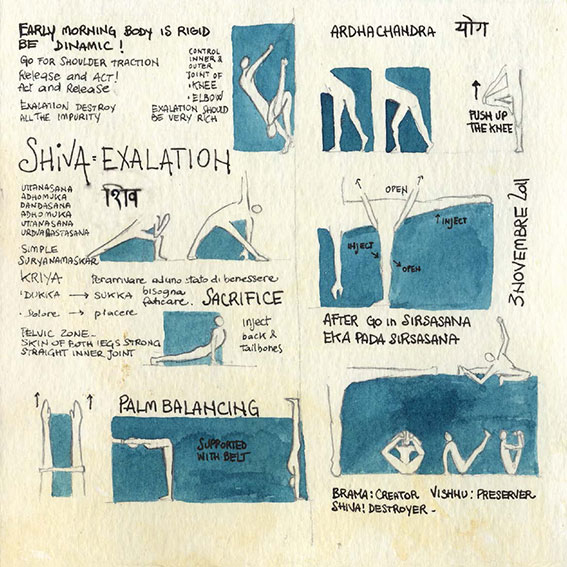 EARLY MORNING BODY IS RIGID
BE DINAMIC!
GO FOR SHOULDER TRACTION
Release and ACT!
Act and Release!
EXALATION DESTROY
ALL THE IMPURITY
CONTROL
INNER &
OUTER
JOINT OF
• KNEE
• ELBOW
EXALATION SHOULD
BE VERY RICH
SHIVA = EXALATION
शिव
UTTANASANA
ADHOMUKA
DANDASANA
ADHOMUKA
UTTANASANA
URDVAASTASANA
SIMPLE
SURYANAMASKAR
KRIYA
Per arrivare ad uno stato di benessere
bisogna
faticare.
SACRIFICE
• DUKKA → SUKKA
• dolore → piacere
PELVIC ZONE -
SKIN OF BOTH LEGS STRONG
STRAIGHT INNER JOINT
inject
back &
tailbones
PALM BALANCING
SUPPORTED
WITH BELT
ARDHACHANDRA
योग
PUSH UP
THE KNEE
OPEN
INJECT
INJECT
OPEN
3 NOVEMBRE 2011
AFTER GO in SIRSASANA
EKA PADA SIRSASANA
BRAMA: CREATOR VISHNU: PRESERVER
SHIVA! DESTROYER -